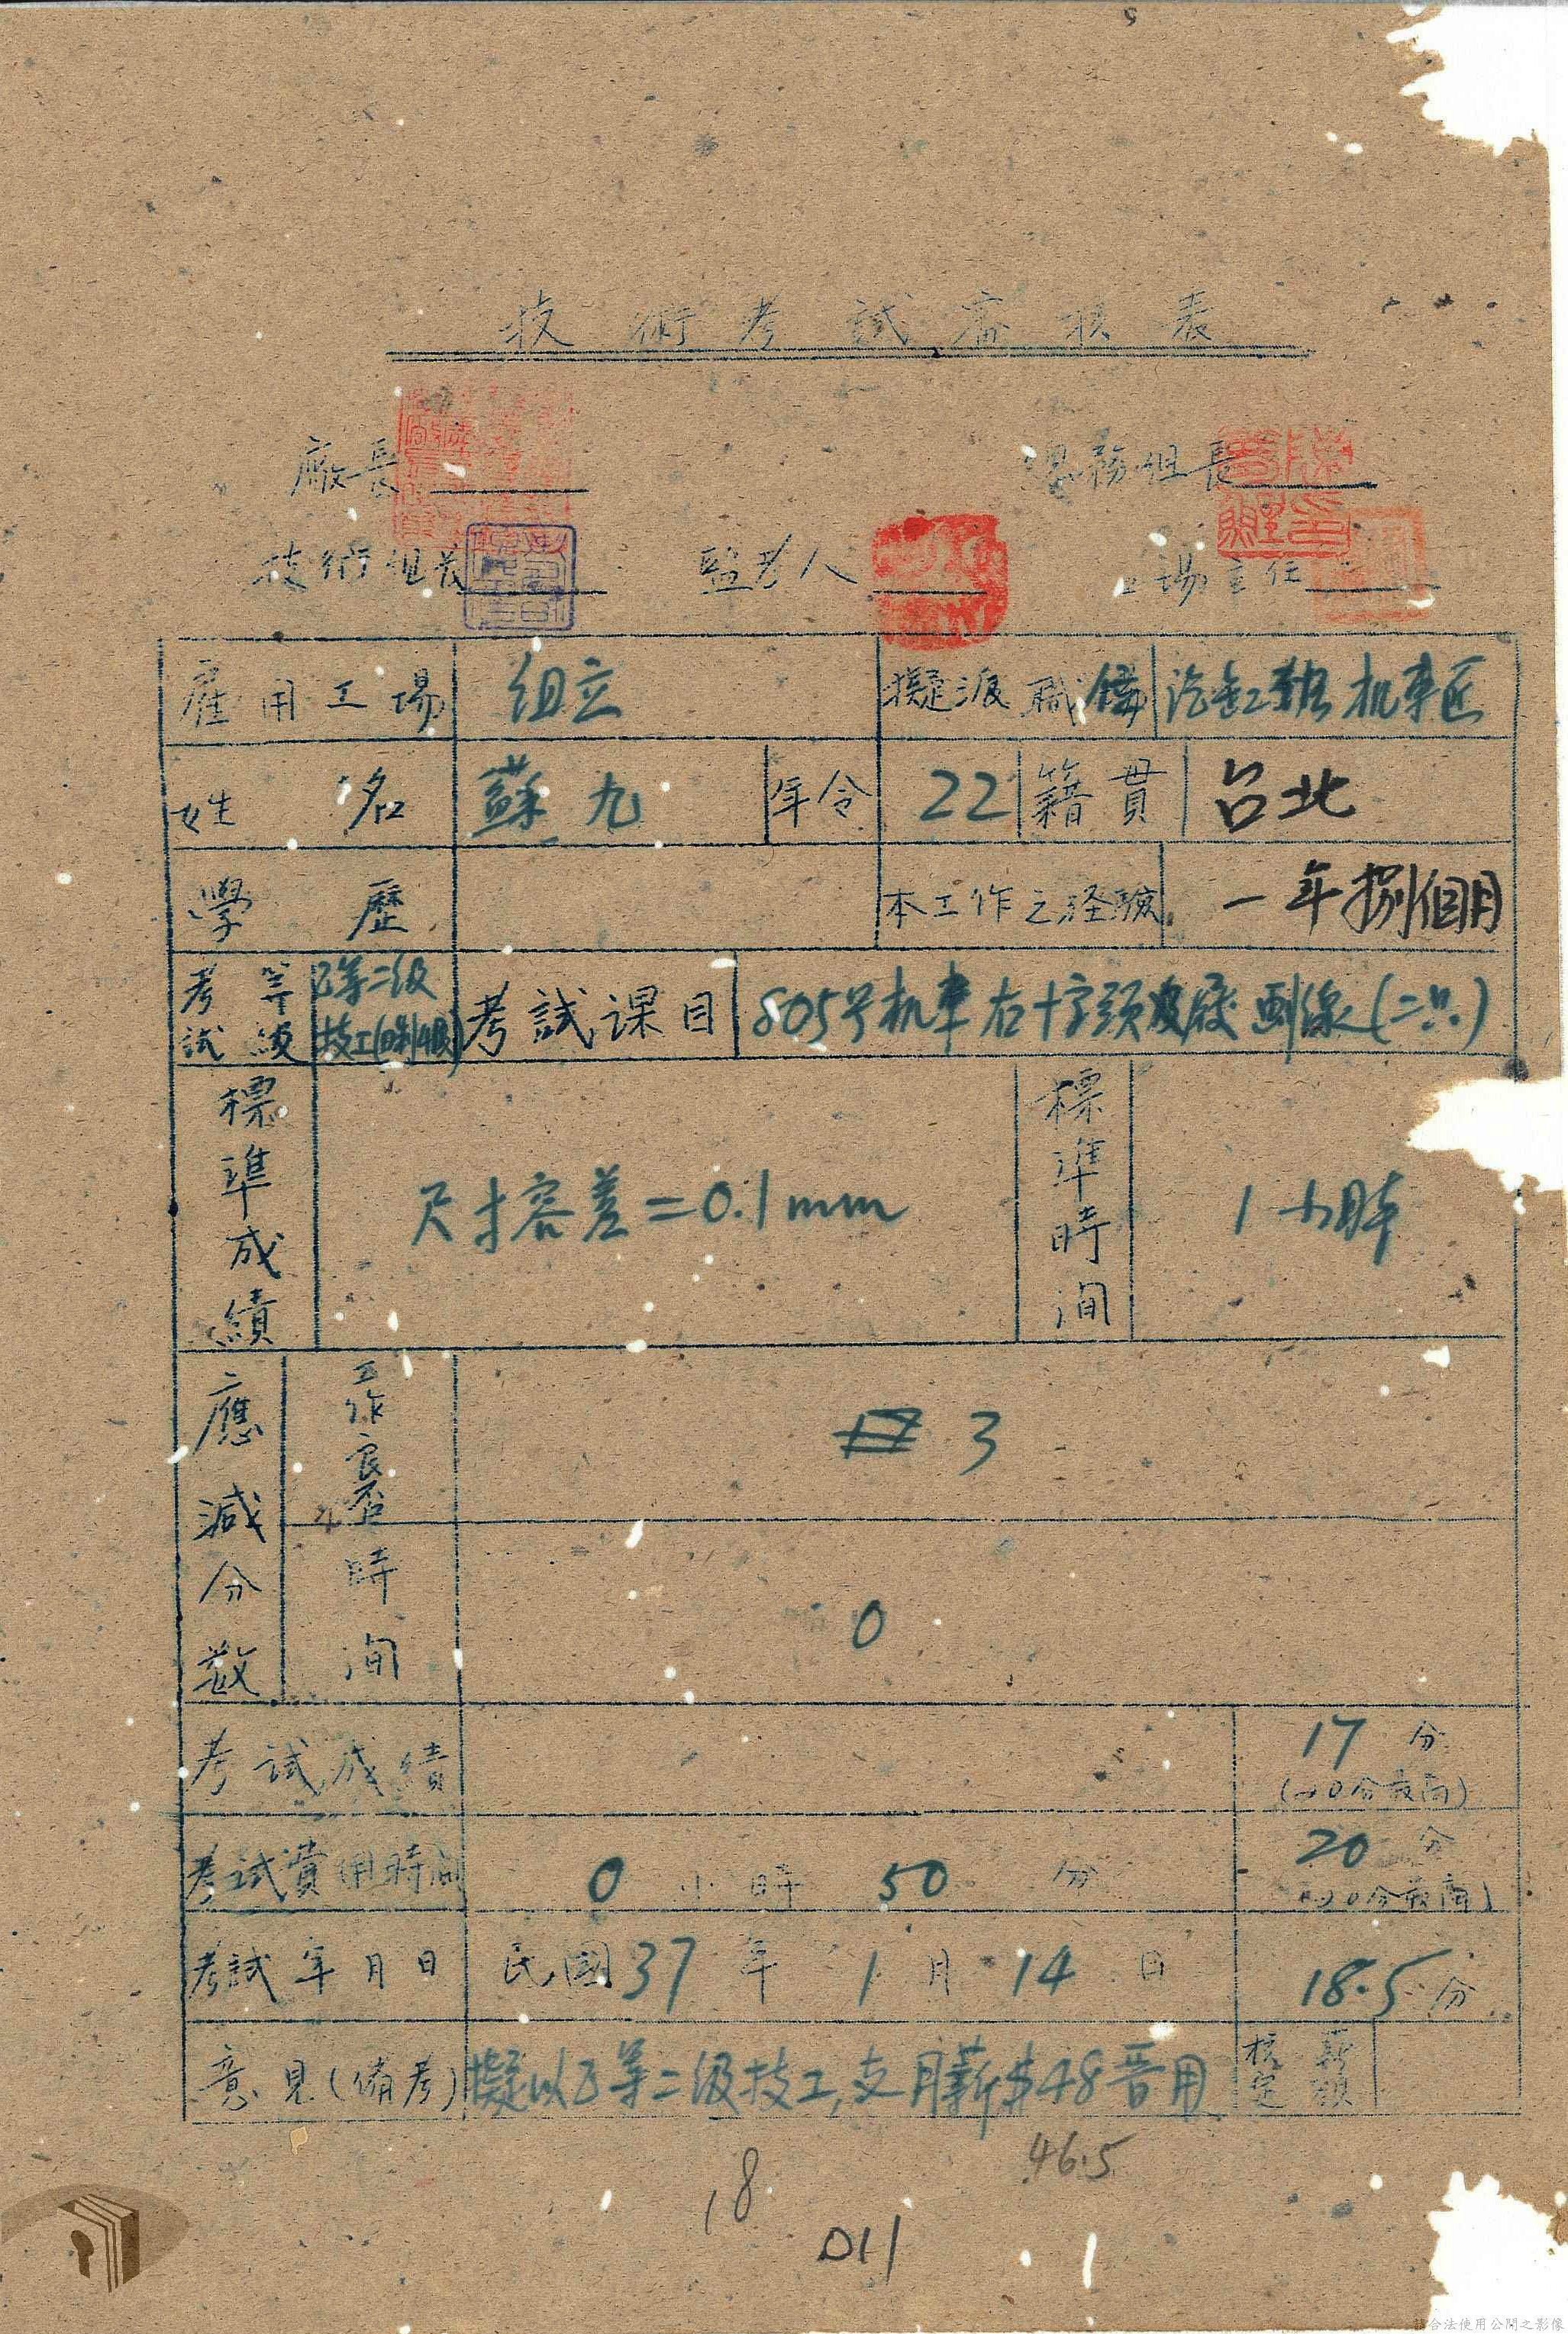 技術考試審核表
廠長 總務組長
技術組長 監考人 工場主任
雇用工場 組立 擬派職務 汽缸 机車匠
姓名 蘇九 年令 22 籍貫 台北
學歷 本工作之経驗 一年捌個月
考試等級 乙等二級技工 考試課目 805号机車右十字頭 画線(二只)
標準成績 尺寸容差=0.1mm 標準時间 1小时
應減分数 工作良否 3
時间 0
考試成績 17分
(20分最高)
考試費用時间 0小時50分 20分
(20分最高)
考試年月日 民國37年1月14日 18.5分
意見(備考) 擬以乙等二級技工,支月薪$48晋用 核定薪額
46.5
18
D11
符合法使用公開之影像